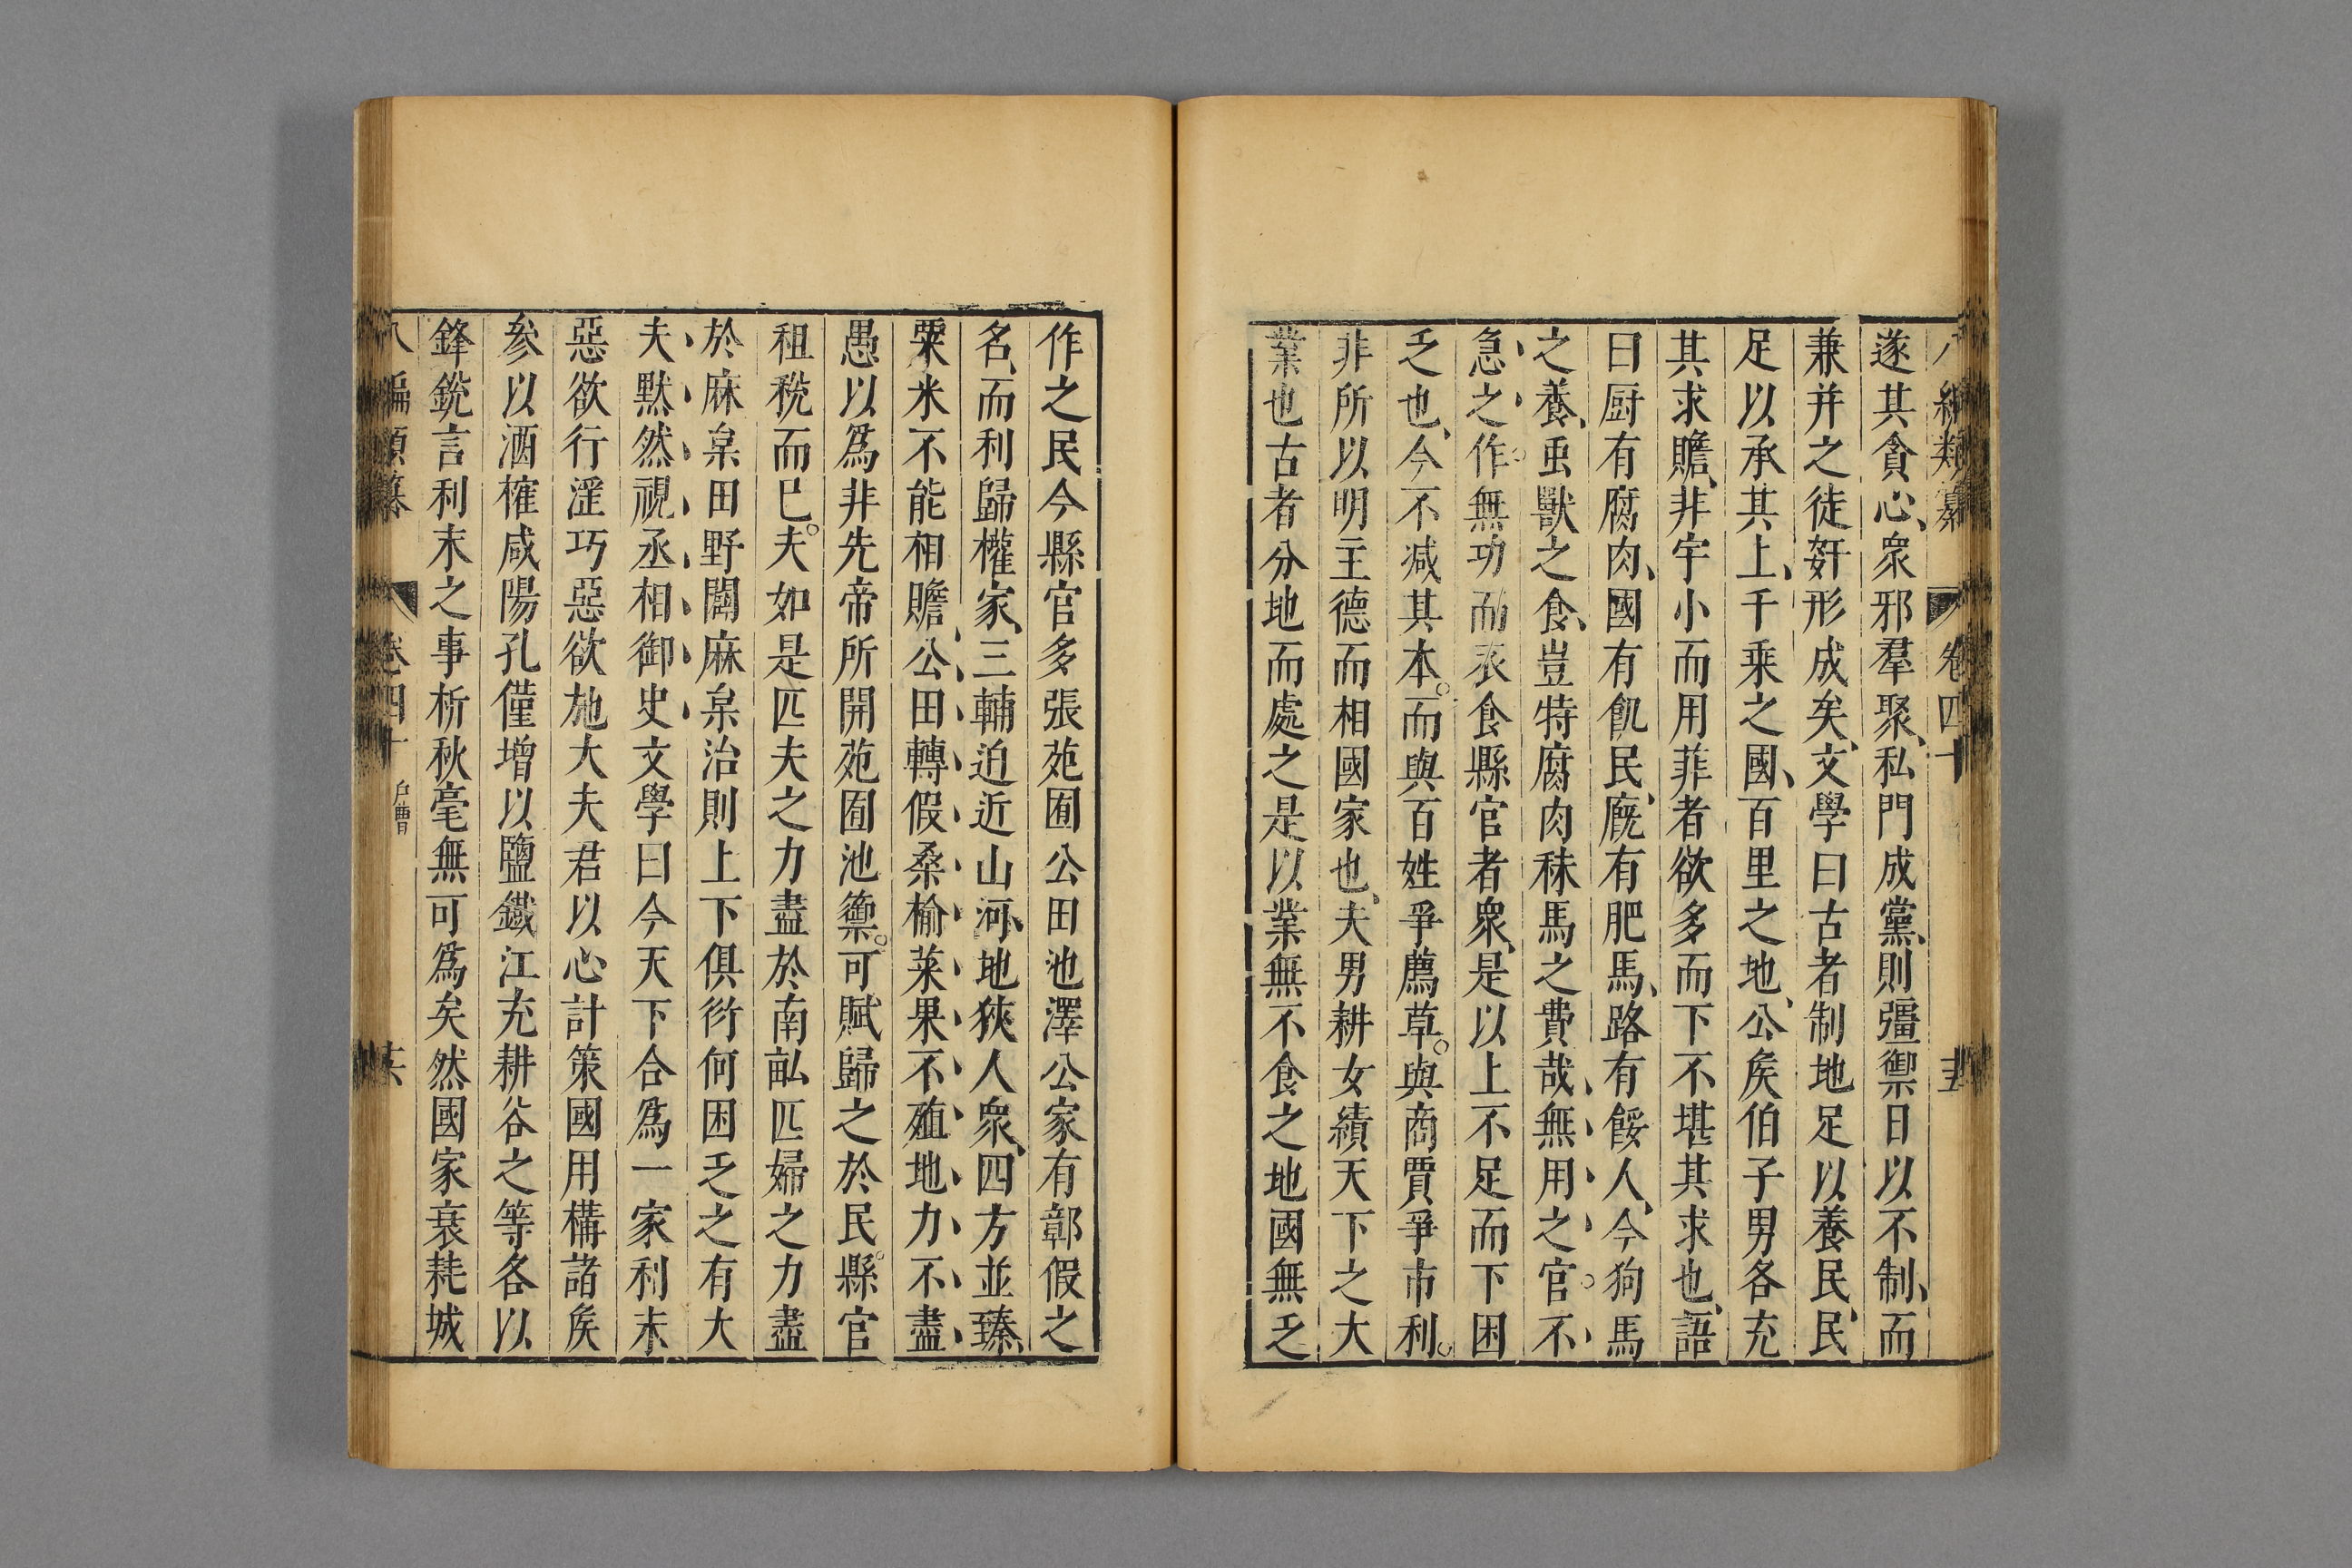 八編類纂 卷四十
遂其貪心、衆邪羣聚、私門成黨、則彊禦日以不制、而
兼并之徒奸形成矣、文學曰古者制地足以養民、民
足以承其上、千乘之國、百里之地、公矦伯子男各充
其求贍、非宇小而用菲者欲多而下不堪其求也、語
曰厨有腐肉、國有飢民、廐有肥馬、路有餒人、今狗馬
之養、䖝獸之食、豈特腐肉秣馬之費哉、無用之官。不
急之作。無功而衣食縣官者衆、是以上不足而下困
乏也、今不減其本。而與百姓爭薦草。與商賈爭市利。
非所以明主德而相國家也、夫男耕女績天下之大
業也古者分地而處之是以業無不食之地國無乏
作之民今縣官多張苑囿公田池澤公家有鄣假之
名、而利歸權家、三輔迫近山河、地狹人衆、四方並臻、
粟米不能相贍、公田轉假桑榆菜果不殖地力不盡
愚以爲非先帝所開苑囿池籞。可賦歸之於民。縣官
租稅而已。夫如是匹夫之力盡於南畝匹婦之力盡
於麻枲田野闢麻枲治則上下俱衍何困乏之有大
夫默然視丞相御史文學曰今天下合爲一家利末
惡欲行淫巧惡欲施大夫君以心計策國用構諸矦
參以酒榷咸陽孔僅增以鹽鐵江充耕谷之等各以
鋒銳言利末之事析秋毫無可爲矣然國家衰耗城
八編類纂 卷四十 戶曹